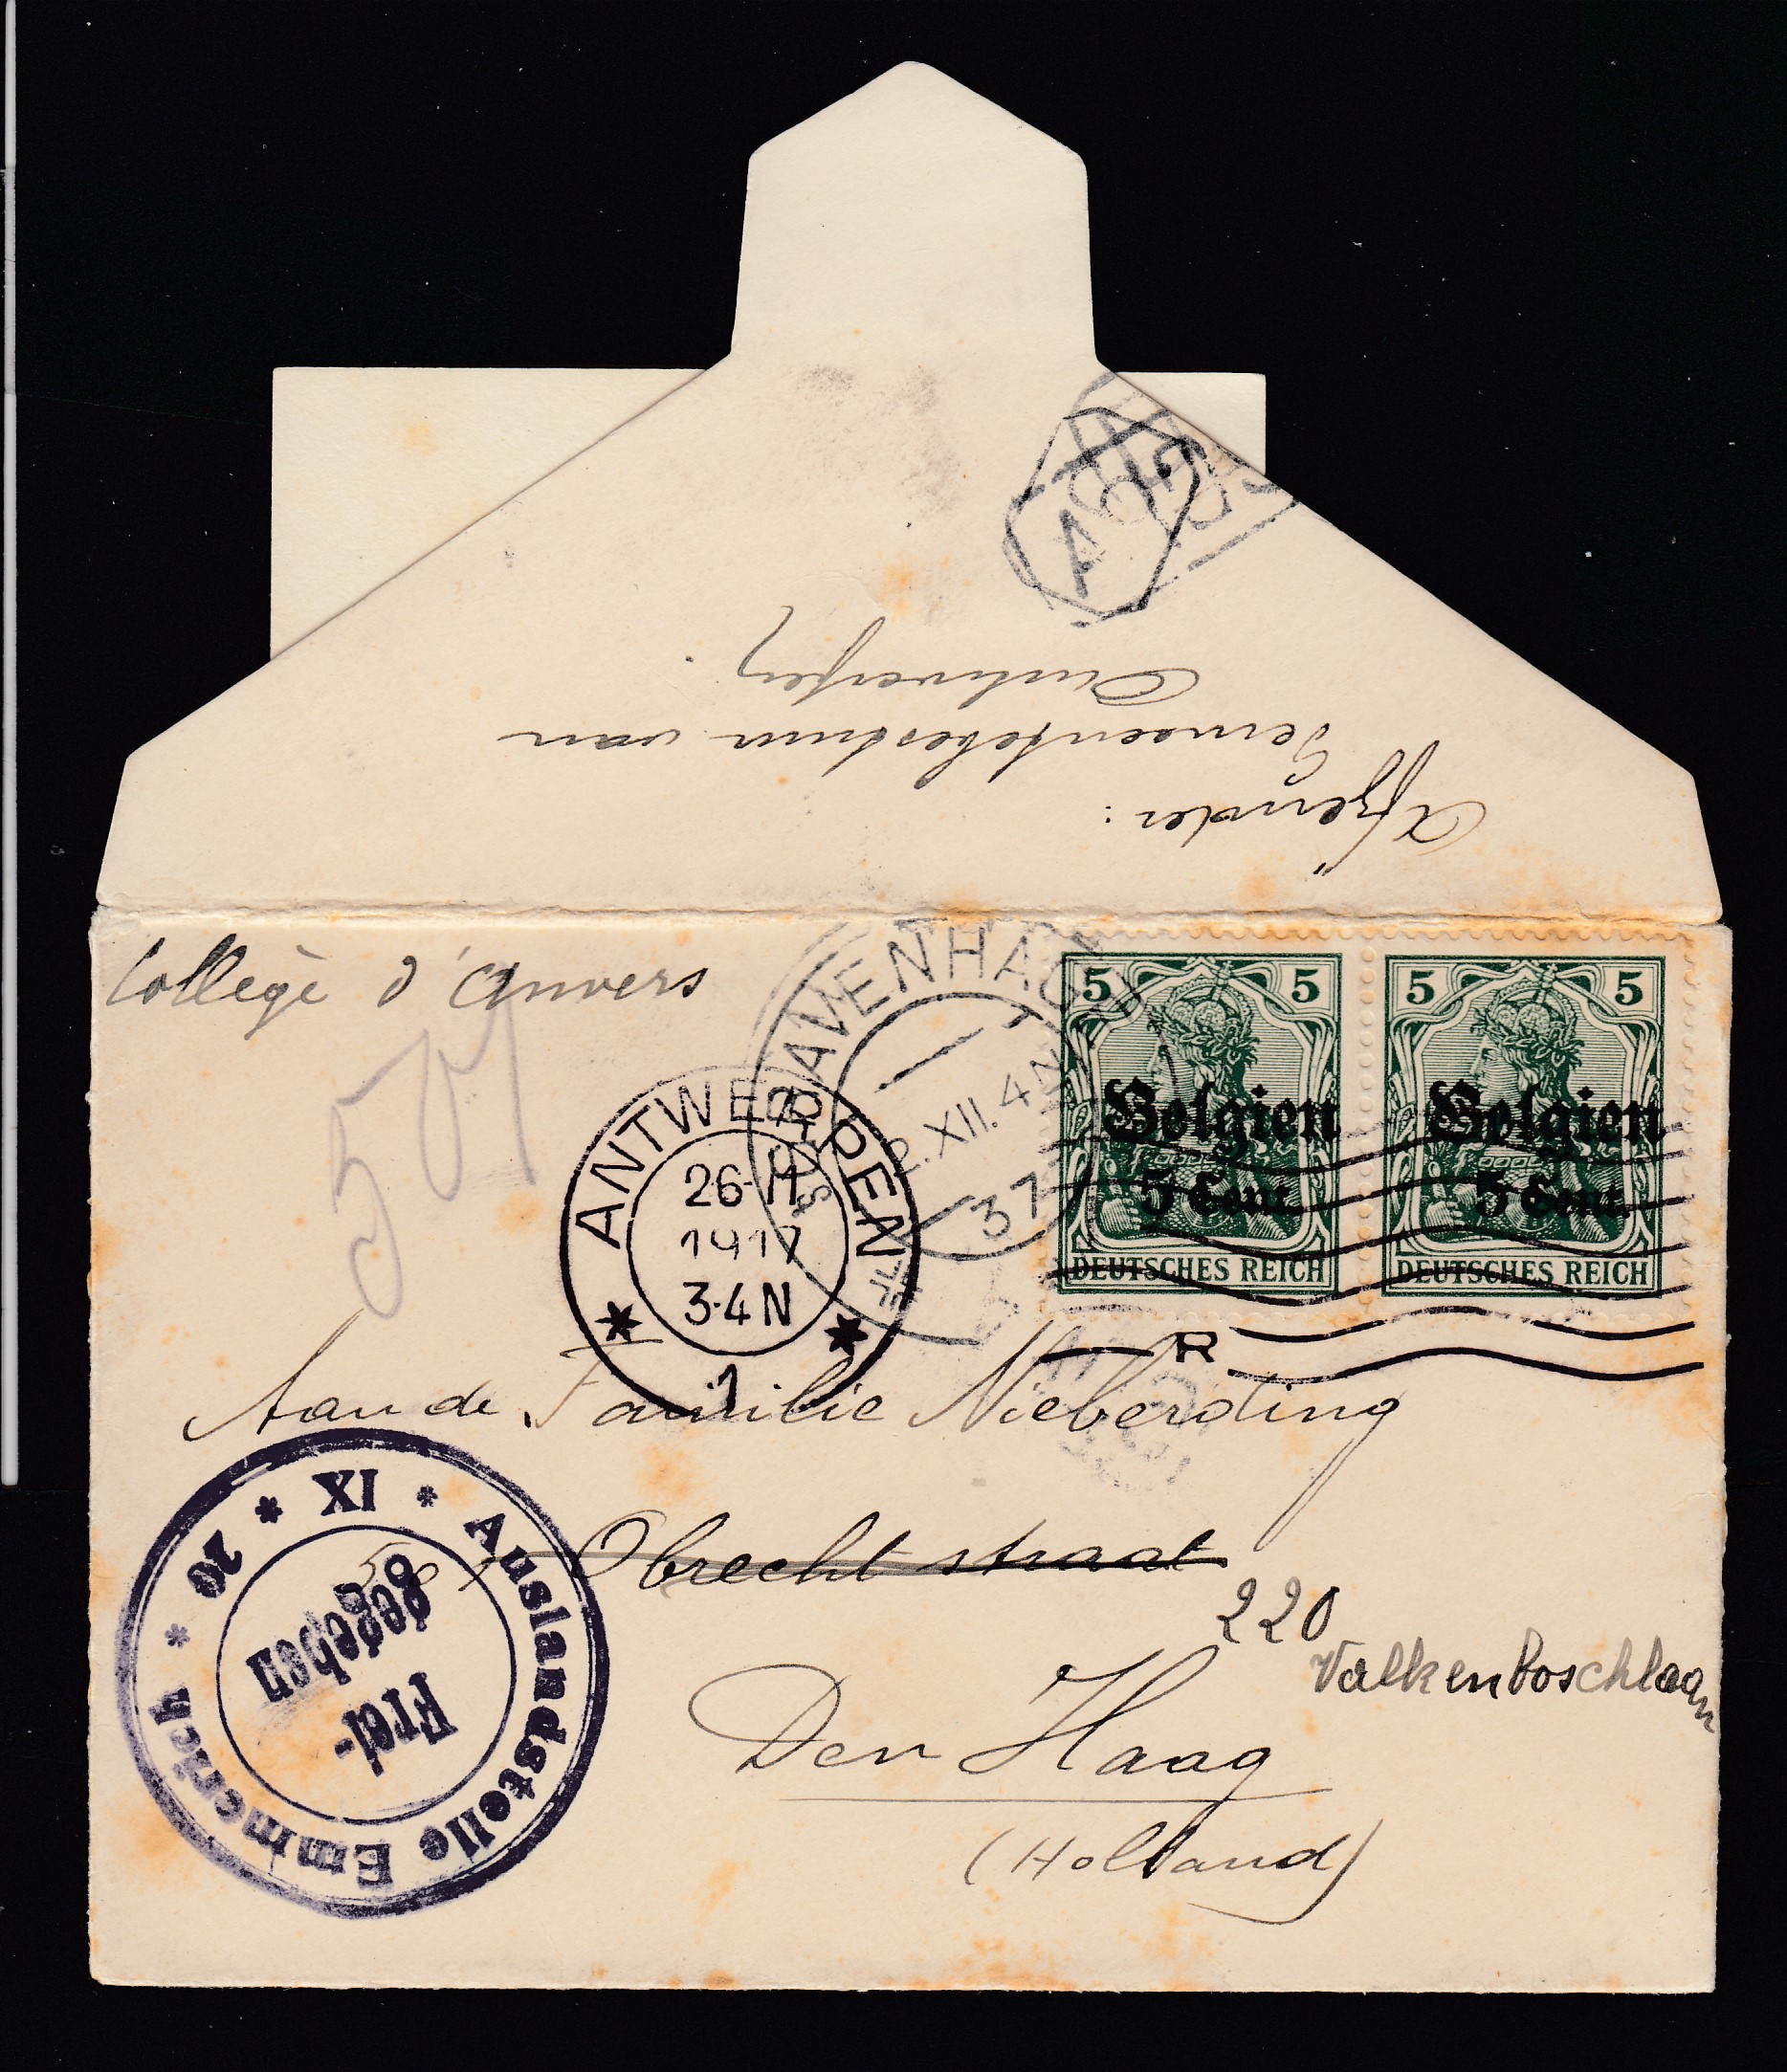 Afzender:
Gemeentebestuur van
Antwerpen.
Collège d'Anvers
501
'S GRAVENHAGE
2.XII. 4 N
37
5 5
Belgien
5 Cent.
DEUTSCHES REICH
5 5
Belgien
5 Cent.
DEUTSCHES REICH
ANTWERPEN
26-11
1917
3-4 N
1
R
Aan de Familie Nieberding
Obrecht straat
220
Valkenboschlaan
Den Haag
(Holland)
Auslandstelle Emmerich * 20 * XI *
Frei-
gegeben